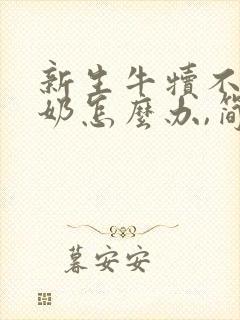 新生牛犊不
奶怎麽办,简
暮安安